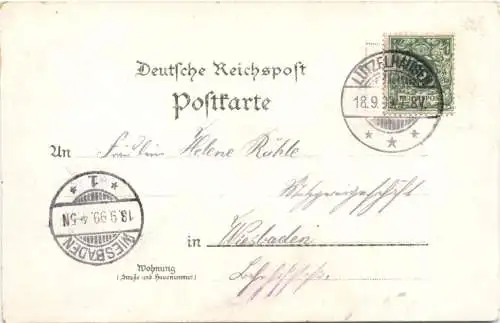 Deutsche Reichspost
Postkarte
LÜTZELHAUSEN
18.9.99. 7-8V.
An Fräulein Helene Rühle
in Wiesbaden
Wohnung
(Straße und Hausnummer)
1
18.9.99. 4-5N
WIESBADEN